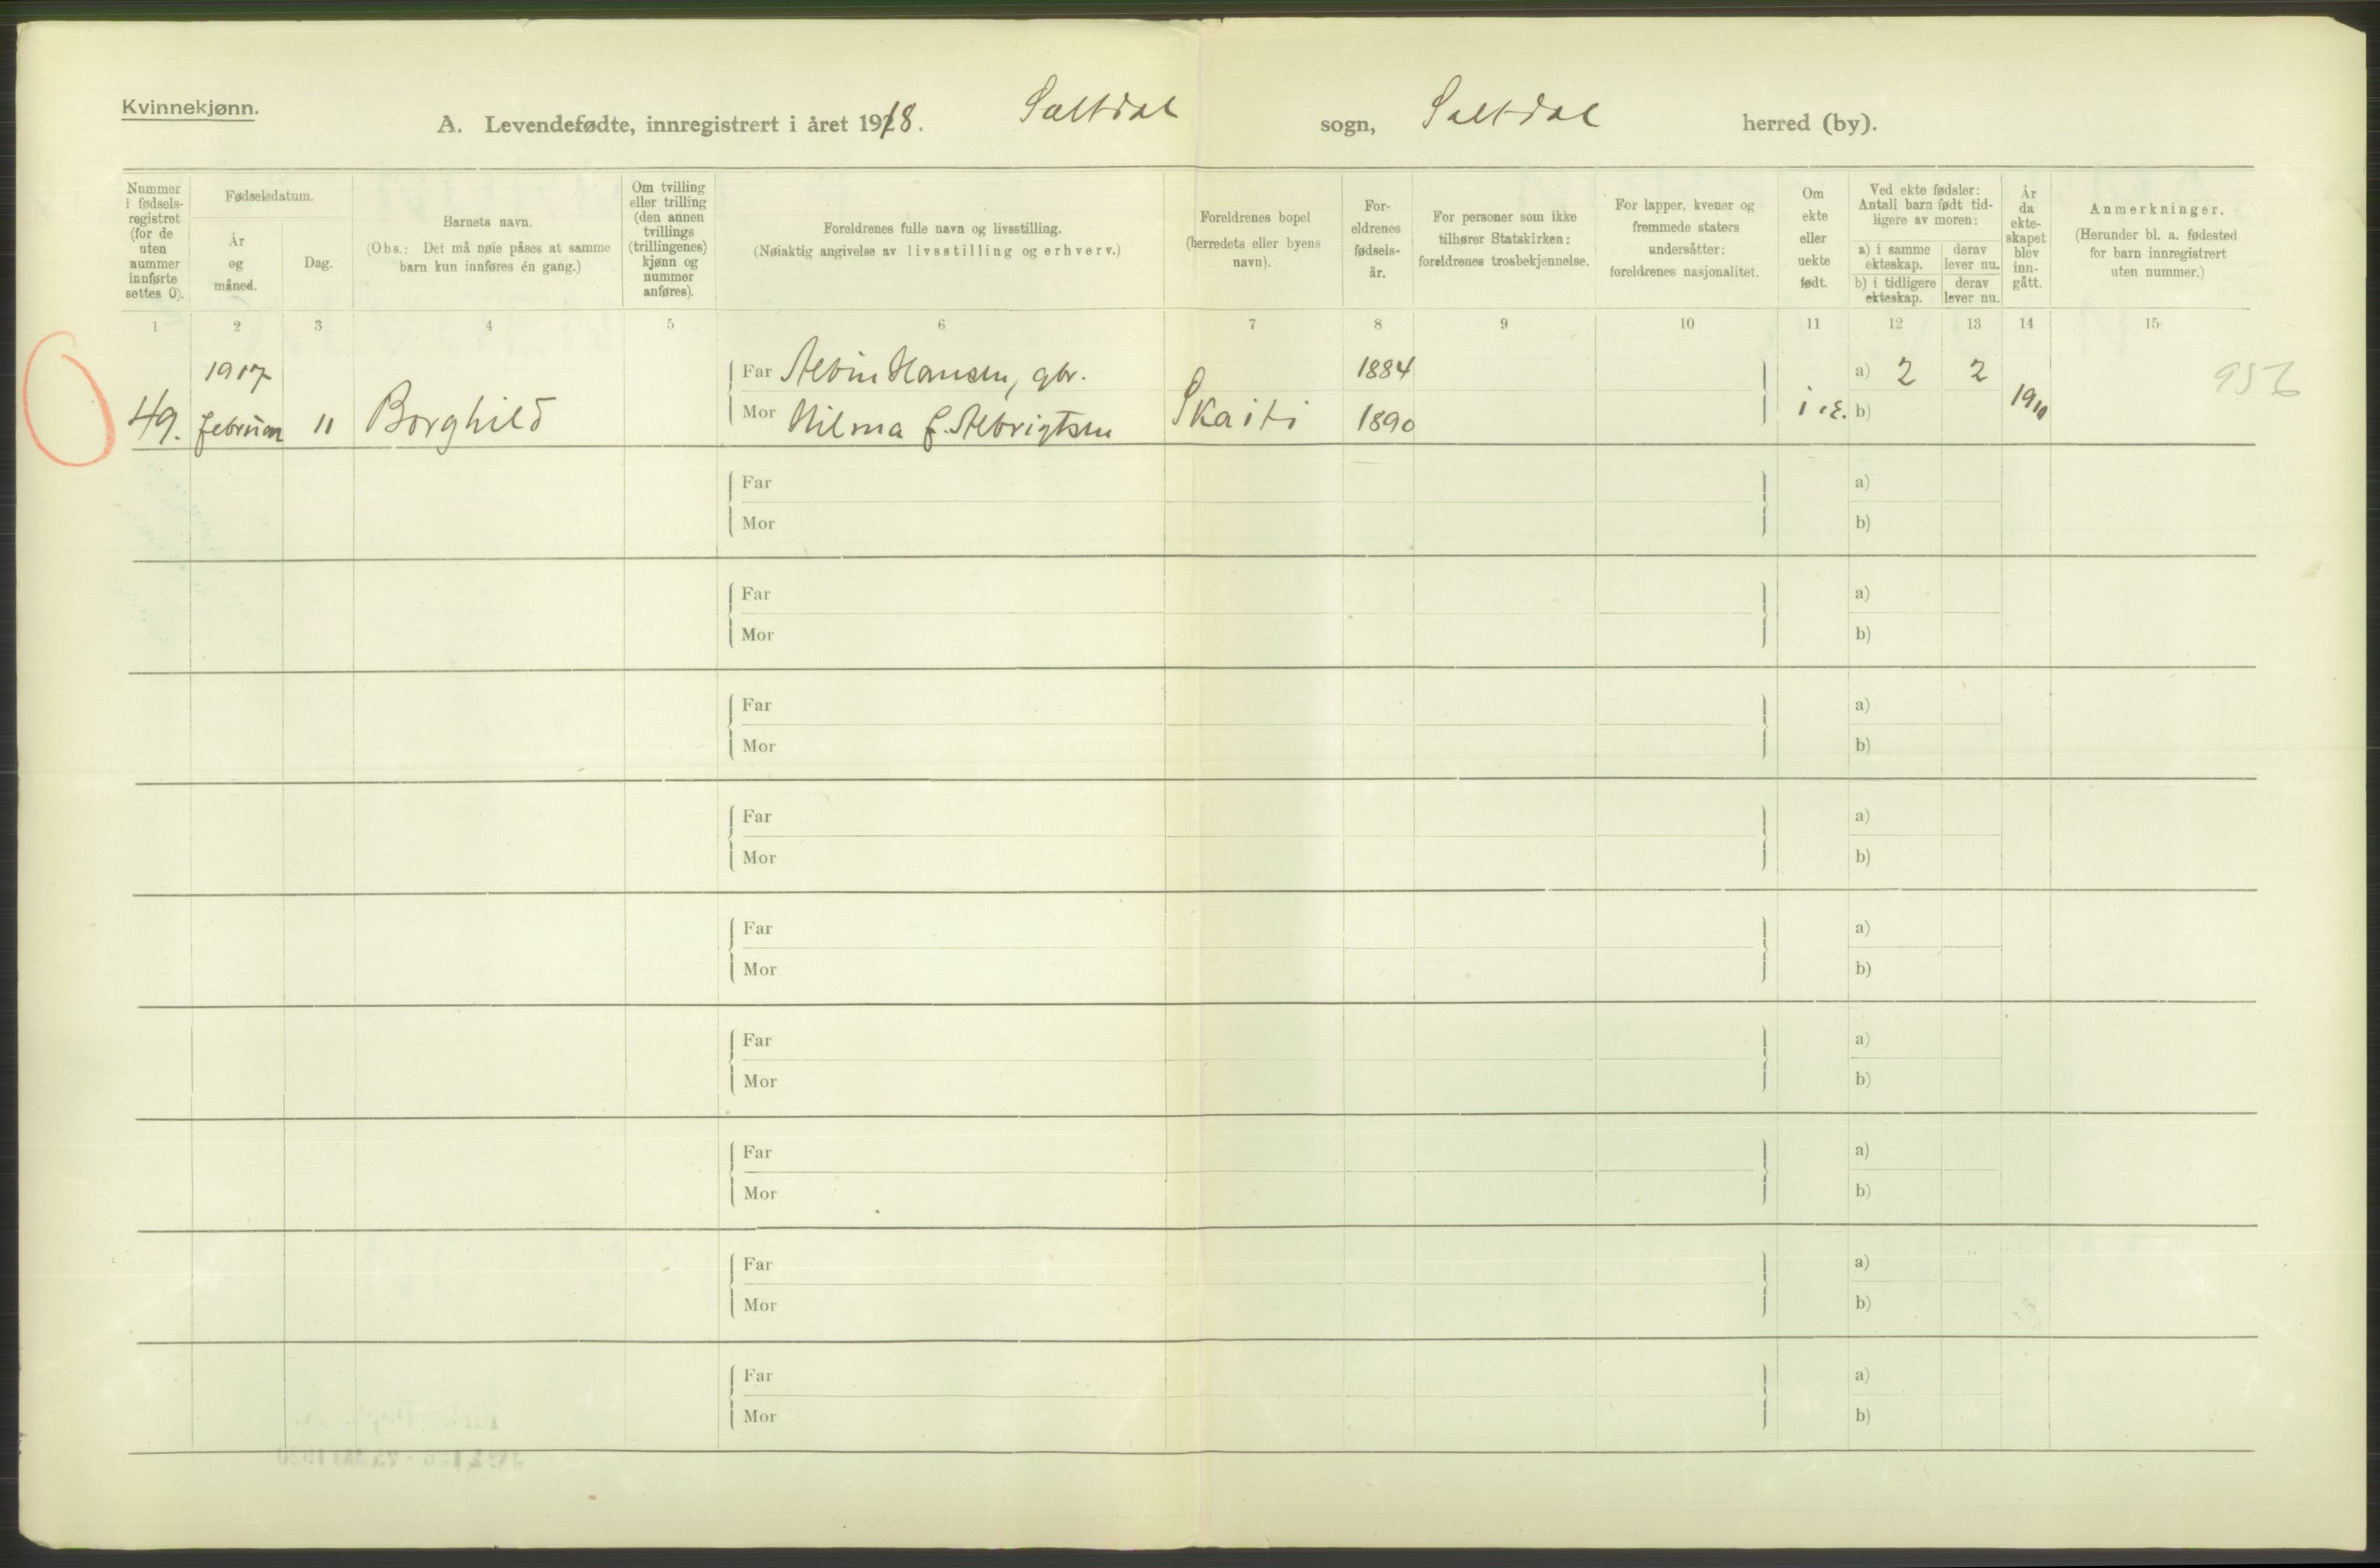 Kvinnekjønn.
A. Levendefødte, innregistrert i året 1918. Saltdal sogn, Saltdal herred (by).
Nummer i fødsels-registret (for de uten nummer innførte settes 0).
Fødselsdatum.
År og måned.
Dag.
Barnets navn.
(Obs.: Det må nøie påses at samme barn kun innføres én gang.)
Om tvilling eller trilling (den annen tvillings (trillingenes) kjønn og nummer anføres).
Foreldrenes fulle navn og livsstilling.
(Nøiaktig angivelse av livsstilling og erhverv.)
Foreldrenes bopel (herredets eller byens navn).
For-eldrenes fødsels-år.
For personer som ikke tilhører Statskirken: foreldrenes trosbekjennelse.
For lapper, kvener og fremmede staters undersåtter: foreldrenes nasjonalitet.
Om ekte eller uekte født.
Ved ekte fødsler: Antall barn født tid-ligere av moren:
a) i samme ekteskap.
derav lever nu.
b) i tidligere ekteskap.
derav lever nu.
År da ekte-skapet blev inn-gått.
Anmerkninger.
(Herunder bl. a. fødested for barn innregistrert uten nummer.)
1 2 3 4 5 6 7 8 9 10 11 12 13 14 15
1917 Far Albin Hansen, gbr. 1884 a) 2 2 956
49. februar 11 Borghild Mor Hilma f. Albrigtsen Skaiti 1890 i.e. b) 1910
Far a)
Mor b)
Far a)
Mor b)
Far a)
Mor b)
Far a)
Mor b)
Far a)
Mor b)
Far a)
Mor b)
Far a)
Mor b)
Far a)
Mor b)
Far a)
Mor b)